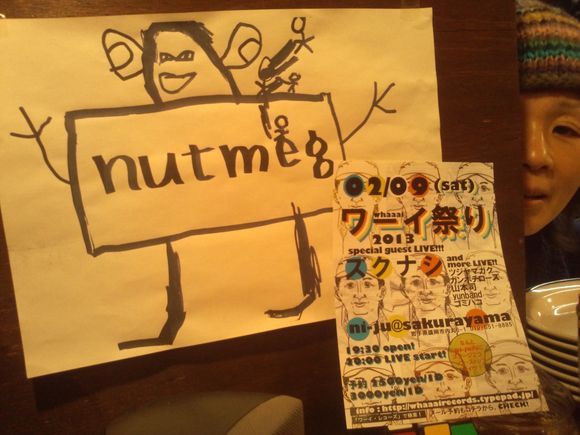 nutmeg
02/09 (sat)
ワーイ祭り
whaaai
2013
special guest LIVE!!!
ズクナシ
and
more LIVE!!
ツジヤマガク
ガンボチローズ
山本司
yunband
ゴミハコ
ni-ju@sakurayama
19:30 open!
20:00 LIVE start!
2500yen/1D
3000yen/1D
info : http://whaaairecords.typepad.jp/
CHECK!